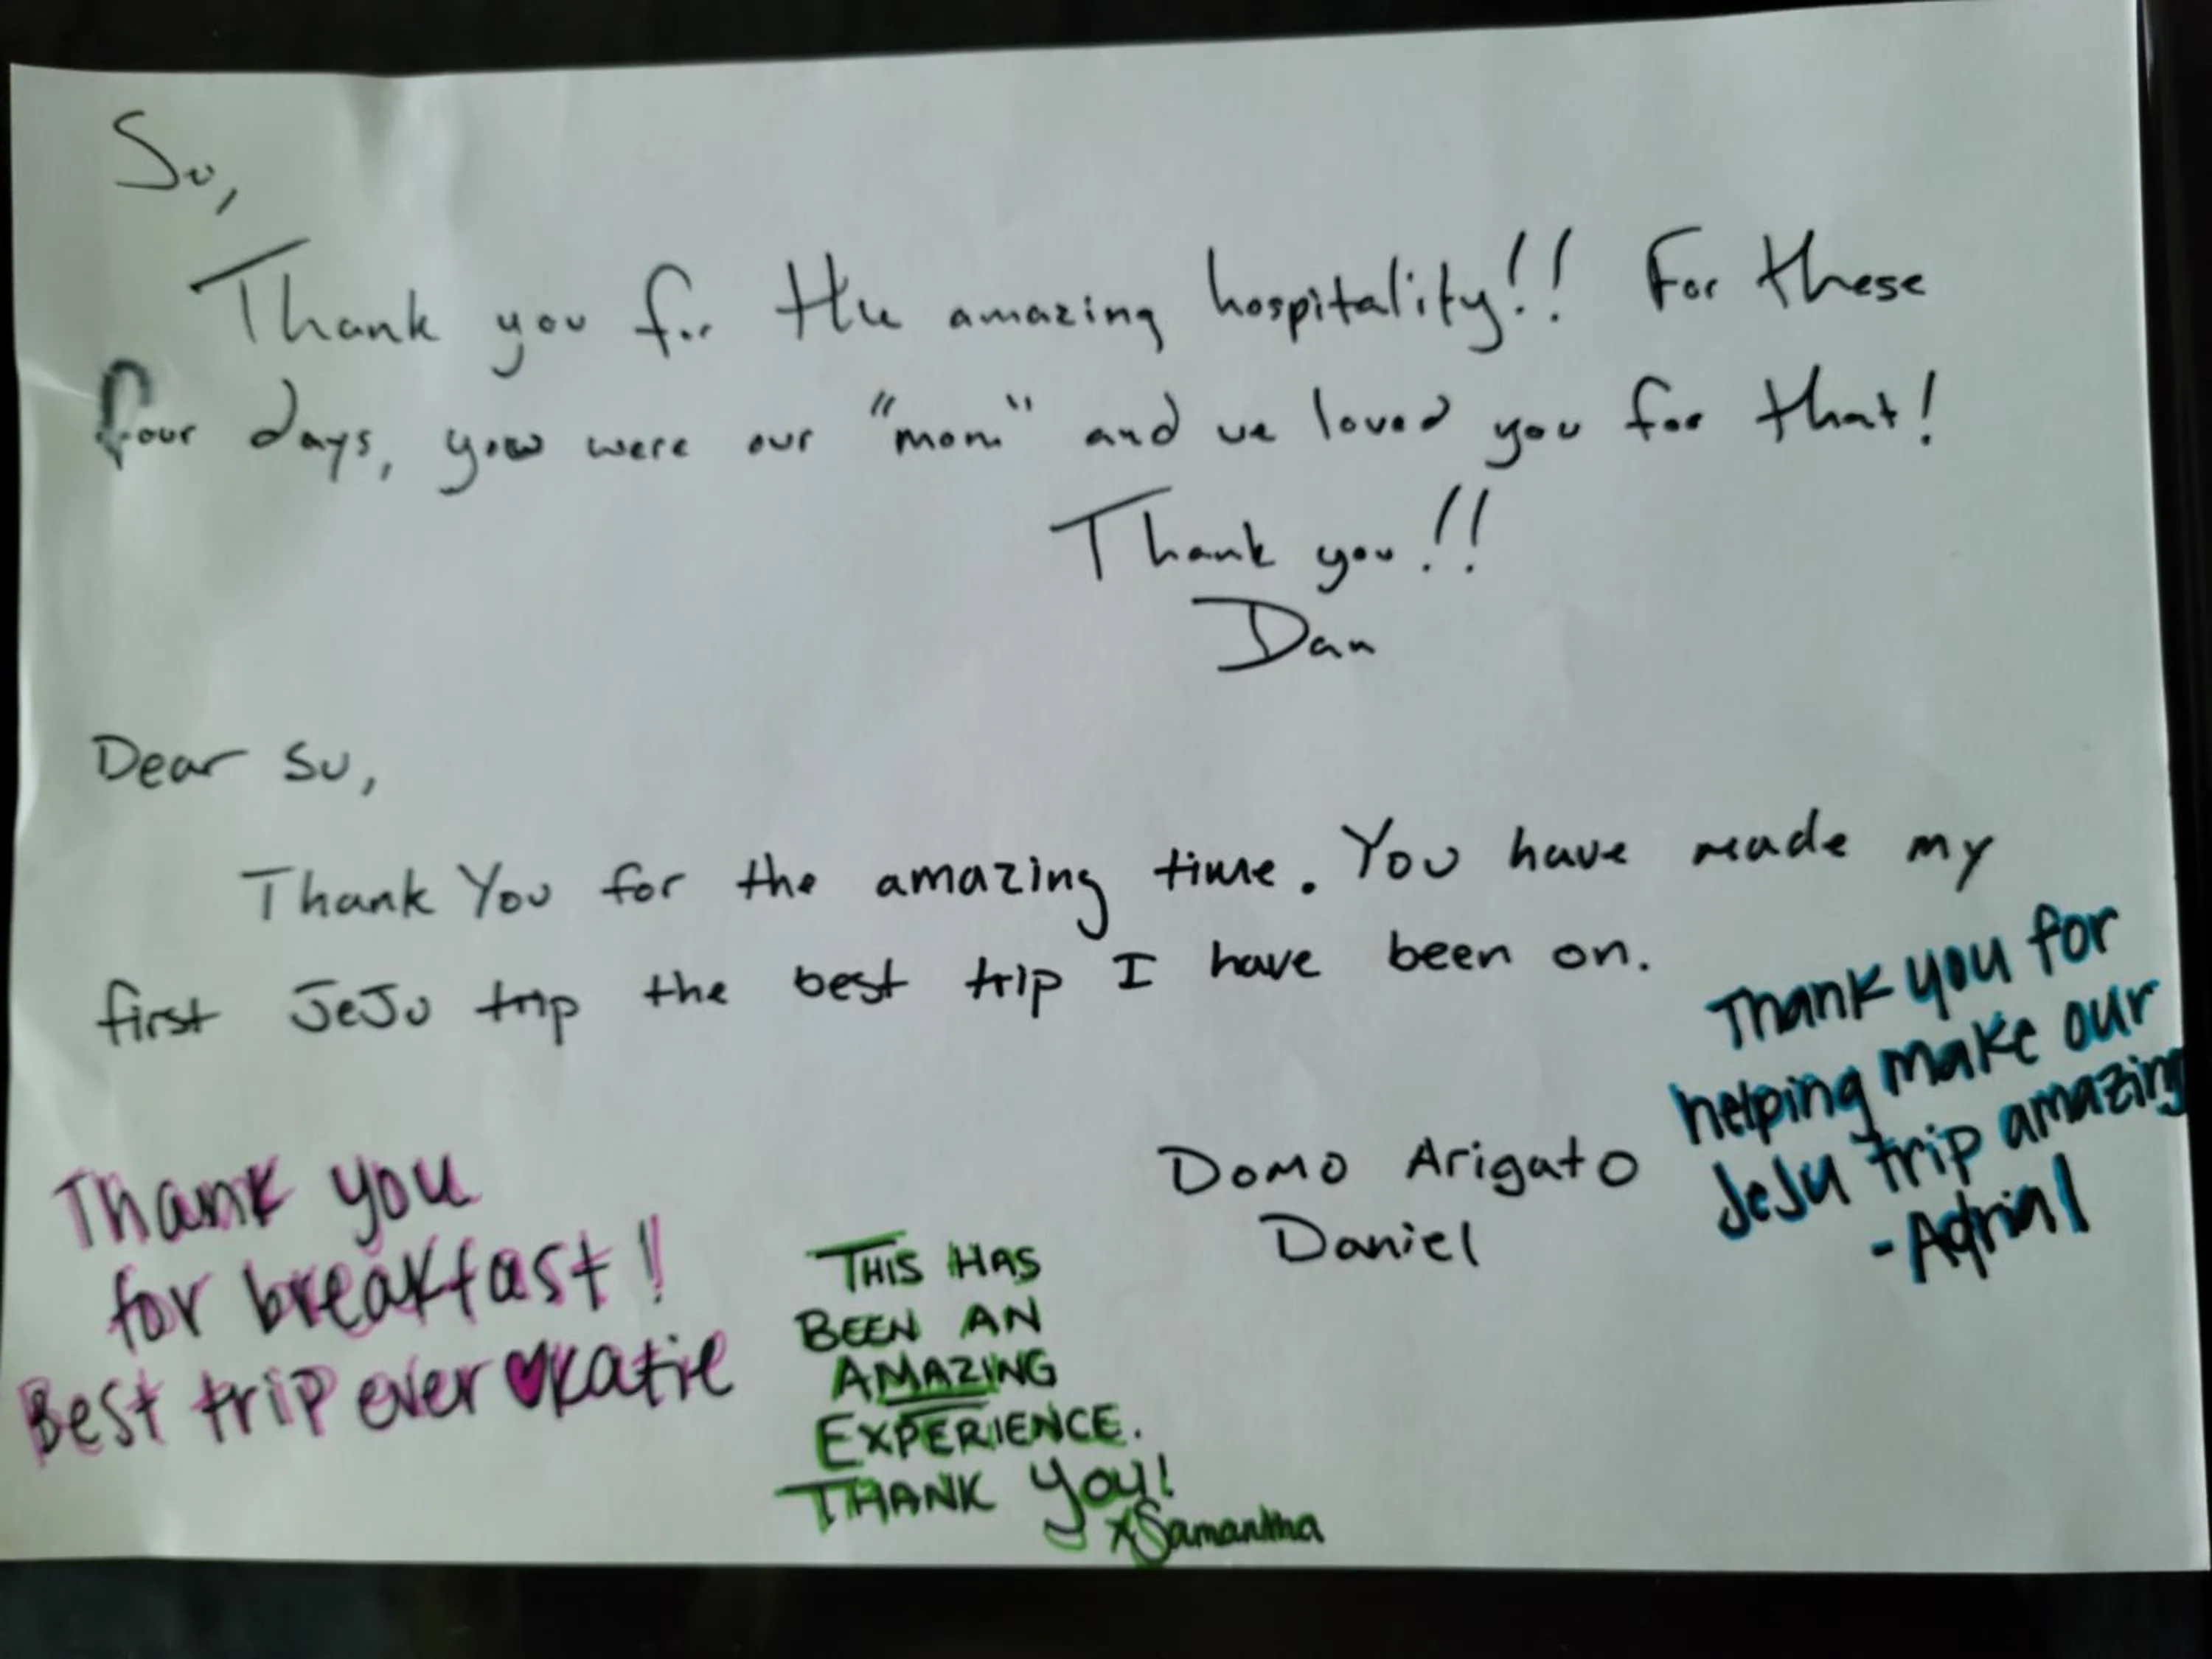 Su,
Thank you for the amazing hospitality!! For these
four days, you were our "mom" and we loved you for that!
Thank you!!
Dan
Dear Su,
Thank You for the amazing time. You have made my
first JeJu trip the best trip I have been on.
Domo Arigato
Daniel
Thank you for
helping make our
JeJu trip amazing
Thank you
for breakfast!
Best trip ever ♥Katie
THIS HAS
BEEN AN
AMAZING
EXPERIENCE.
THANK YOU!
xSamantha